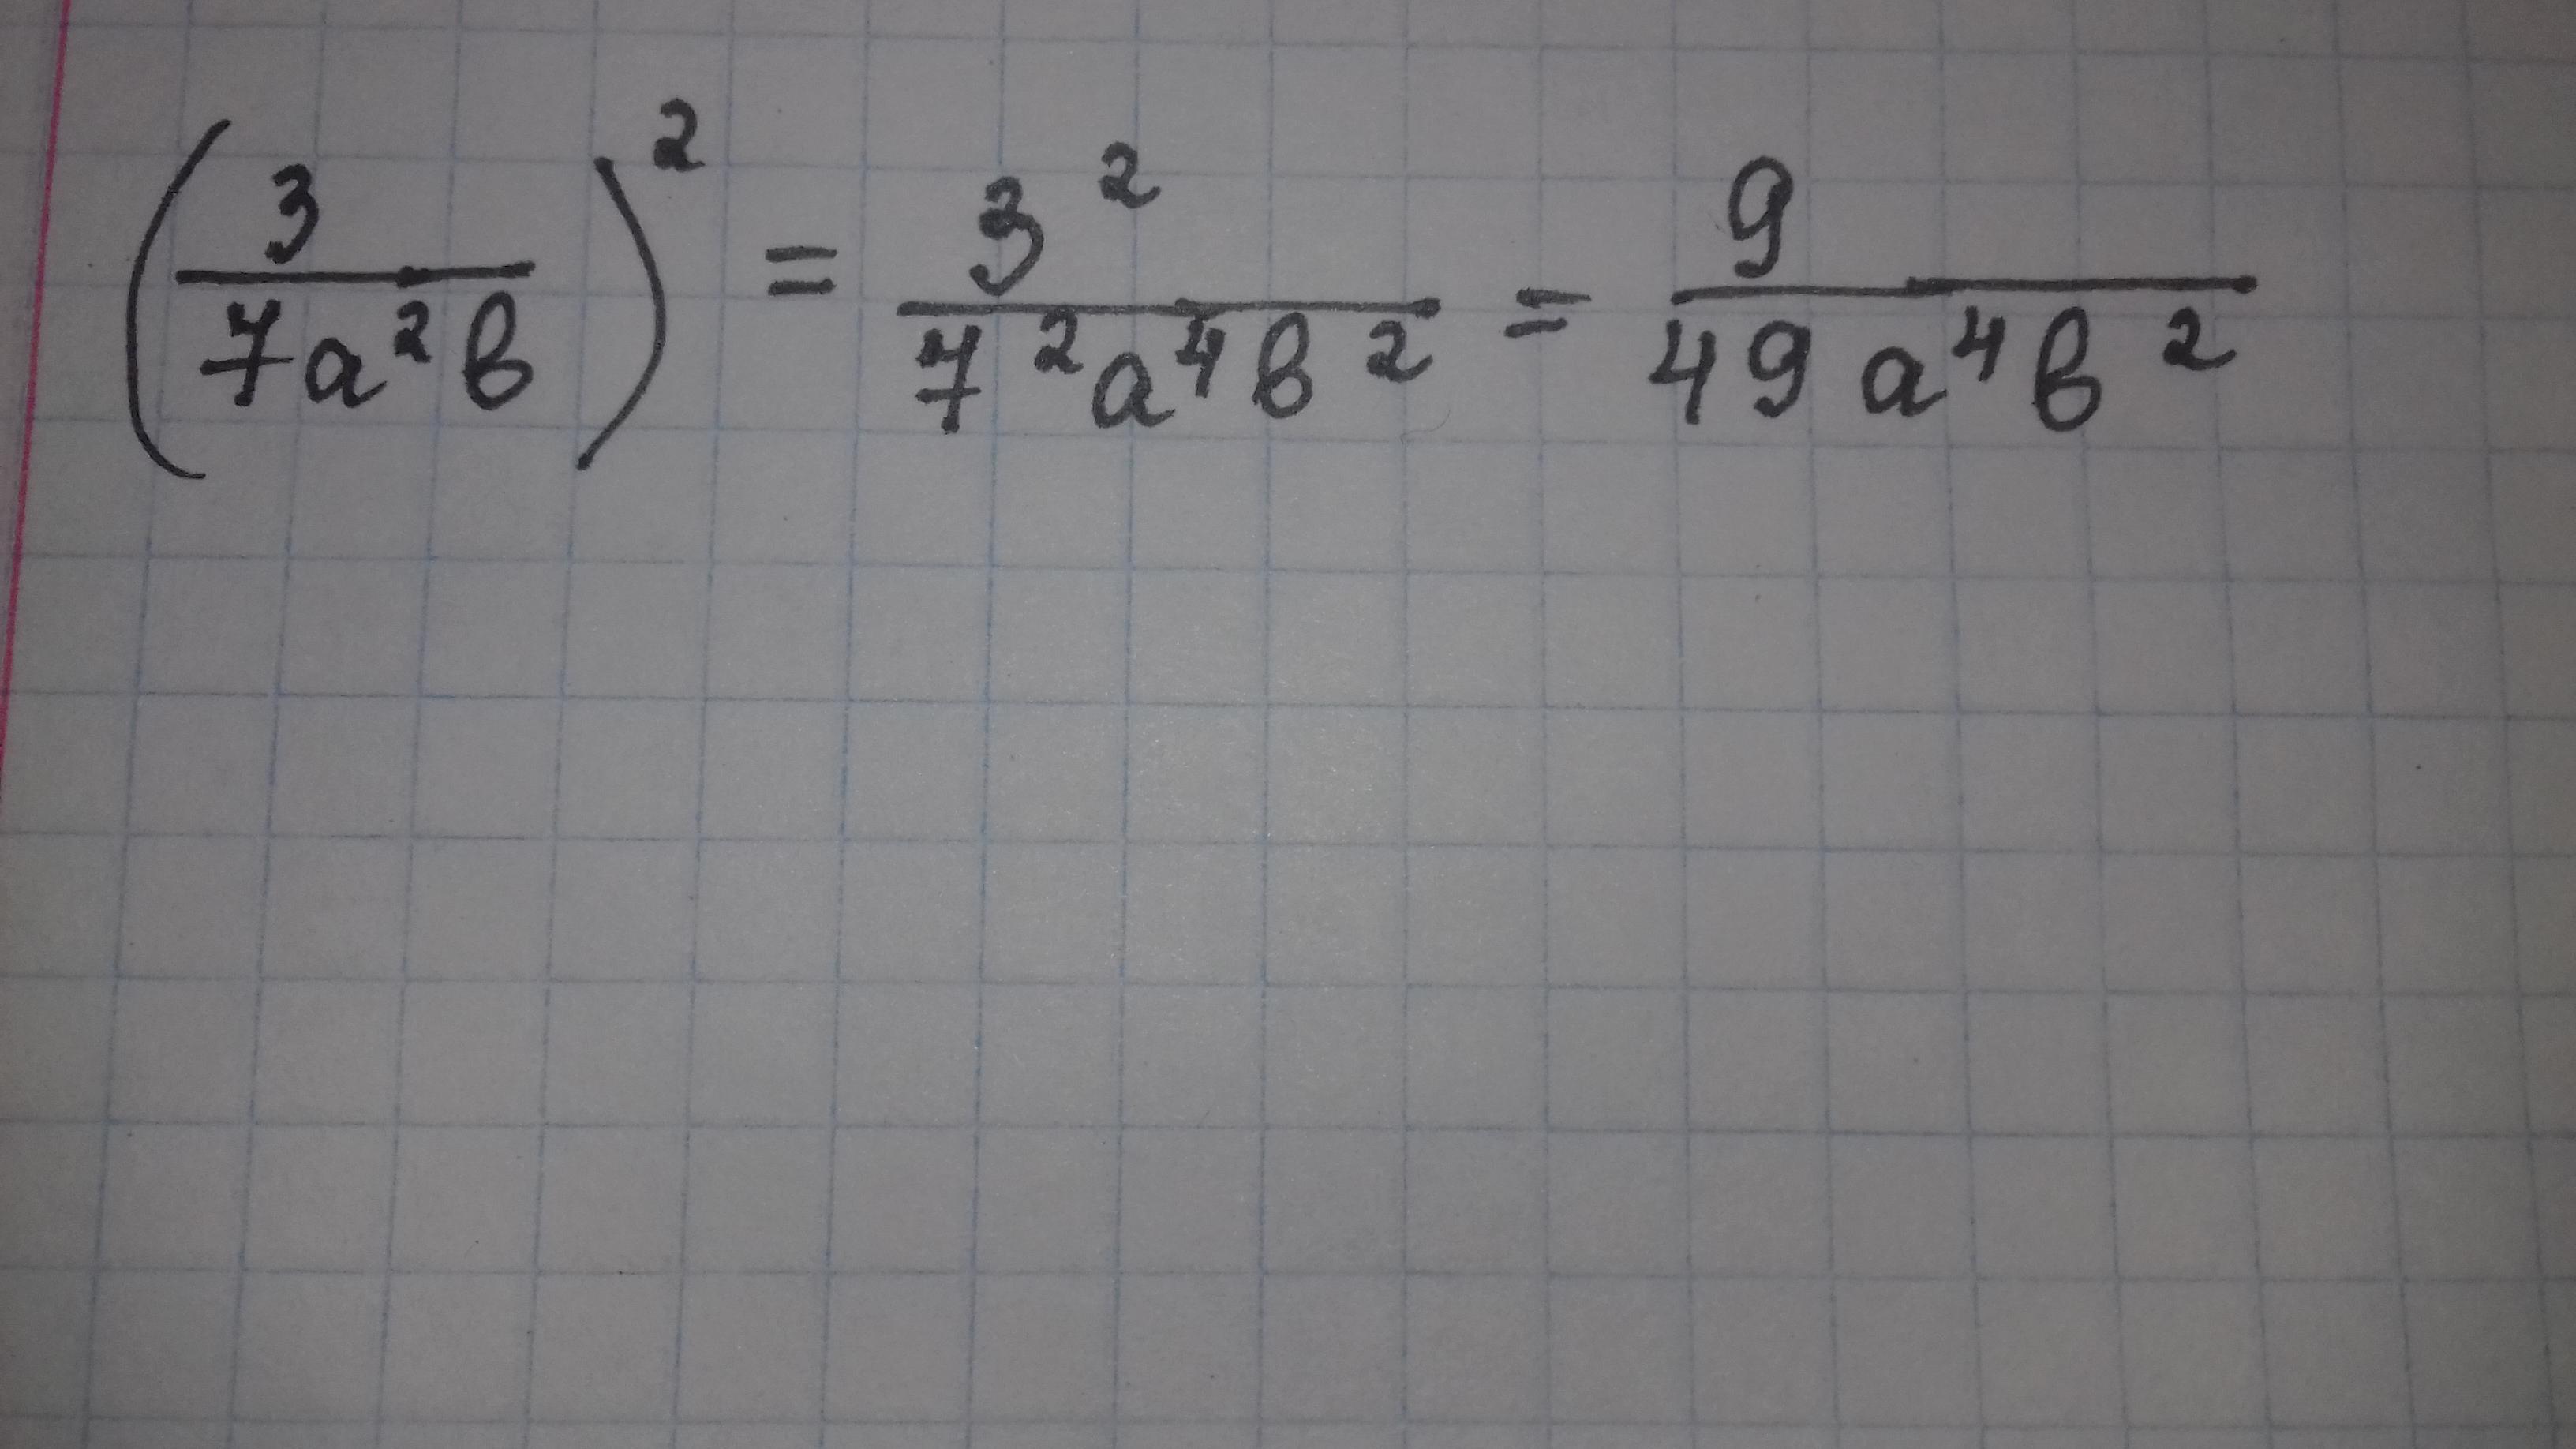 (3/7a²b)² = 3²/7²a⁴b² = 9/49a⁴b²